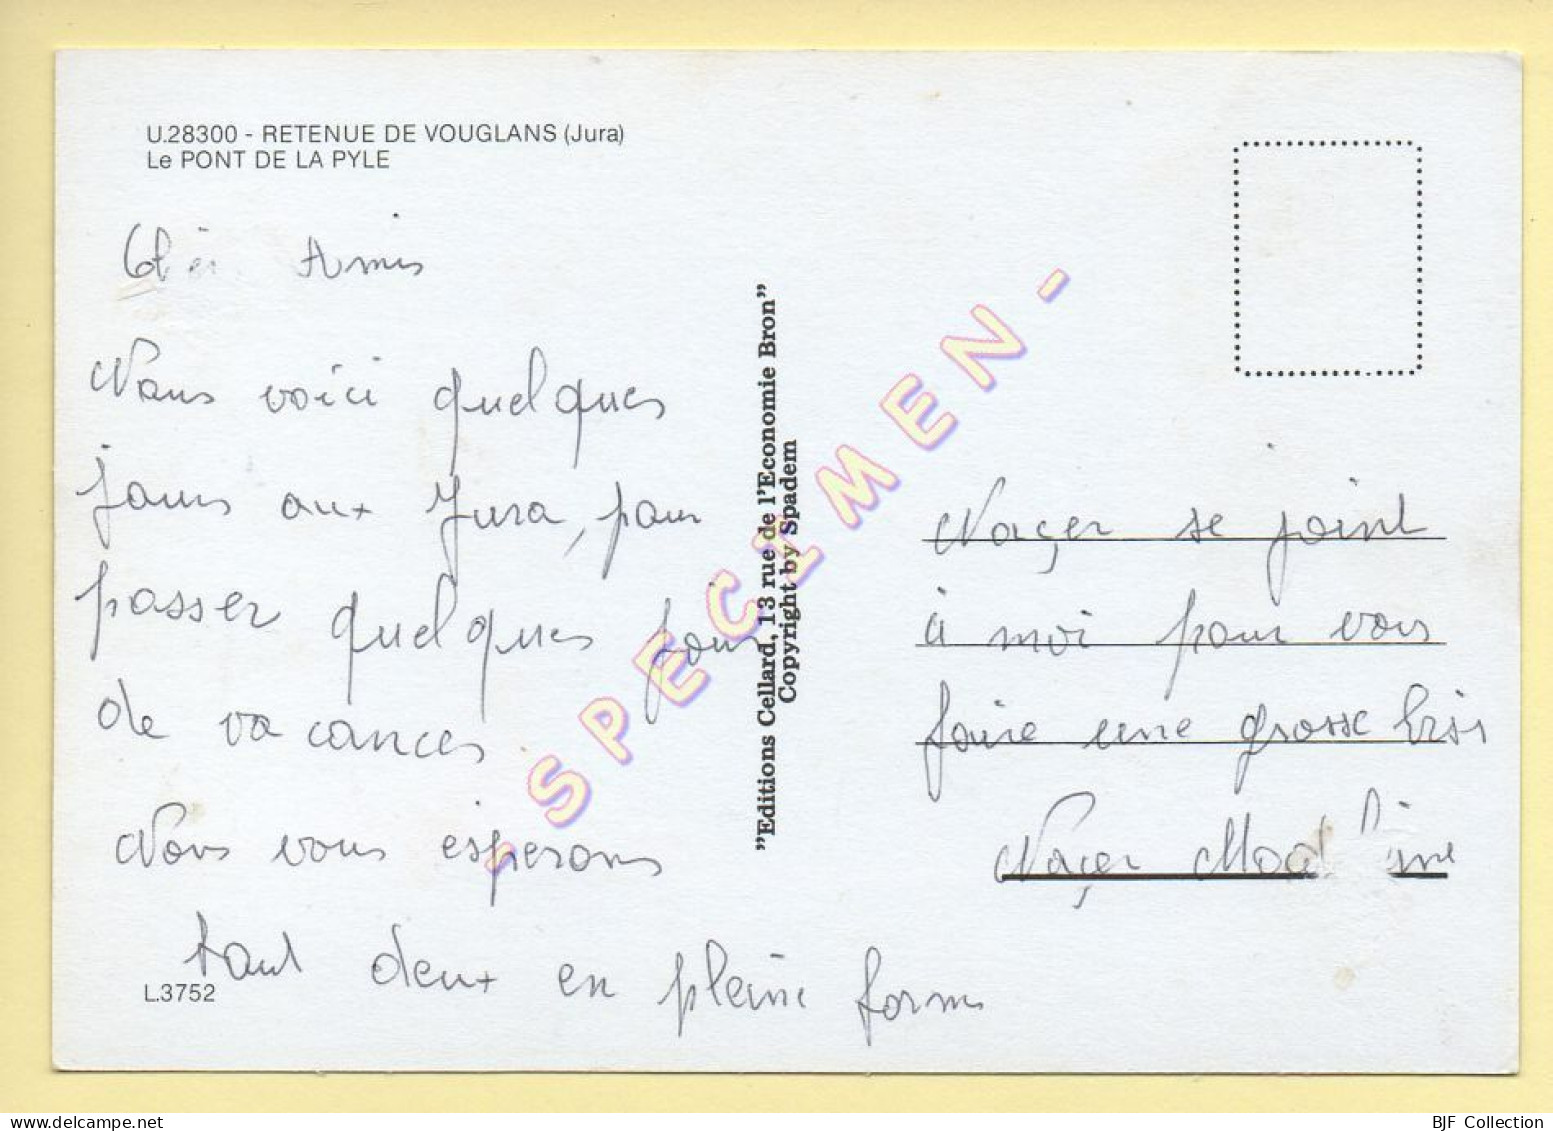 U.28300 - RETENUE DE VOUGLANS (Jura)
Le PONT DE LA PYLE
Amis
Nous voici quelques
jours aux Jura, pour
passer quelques jour
de vacances
Nous vous esperons
tout deux en pleine forms
L.3752
"Editions Cellard, 13 rue de l'Economie Bron"
Copyright by Spadem
- SPECIMEN -
Naçer se joint
à moi pour vous
faire une grosse bise
Naçer
BJF Collection